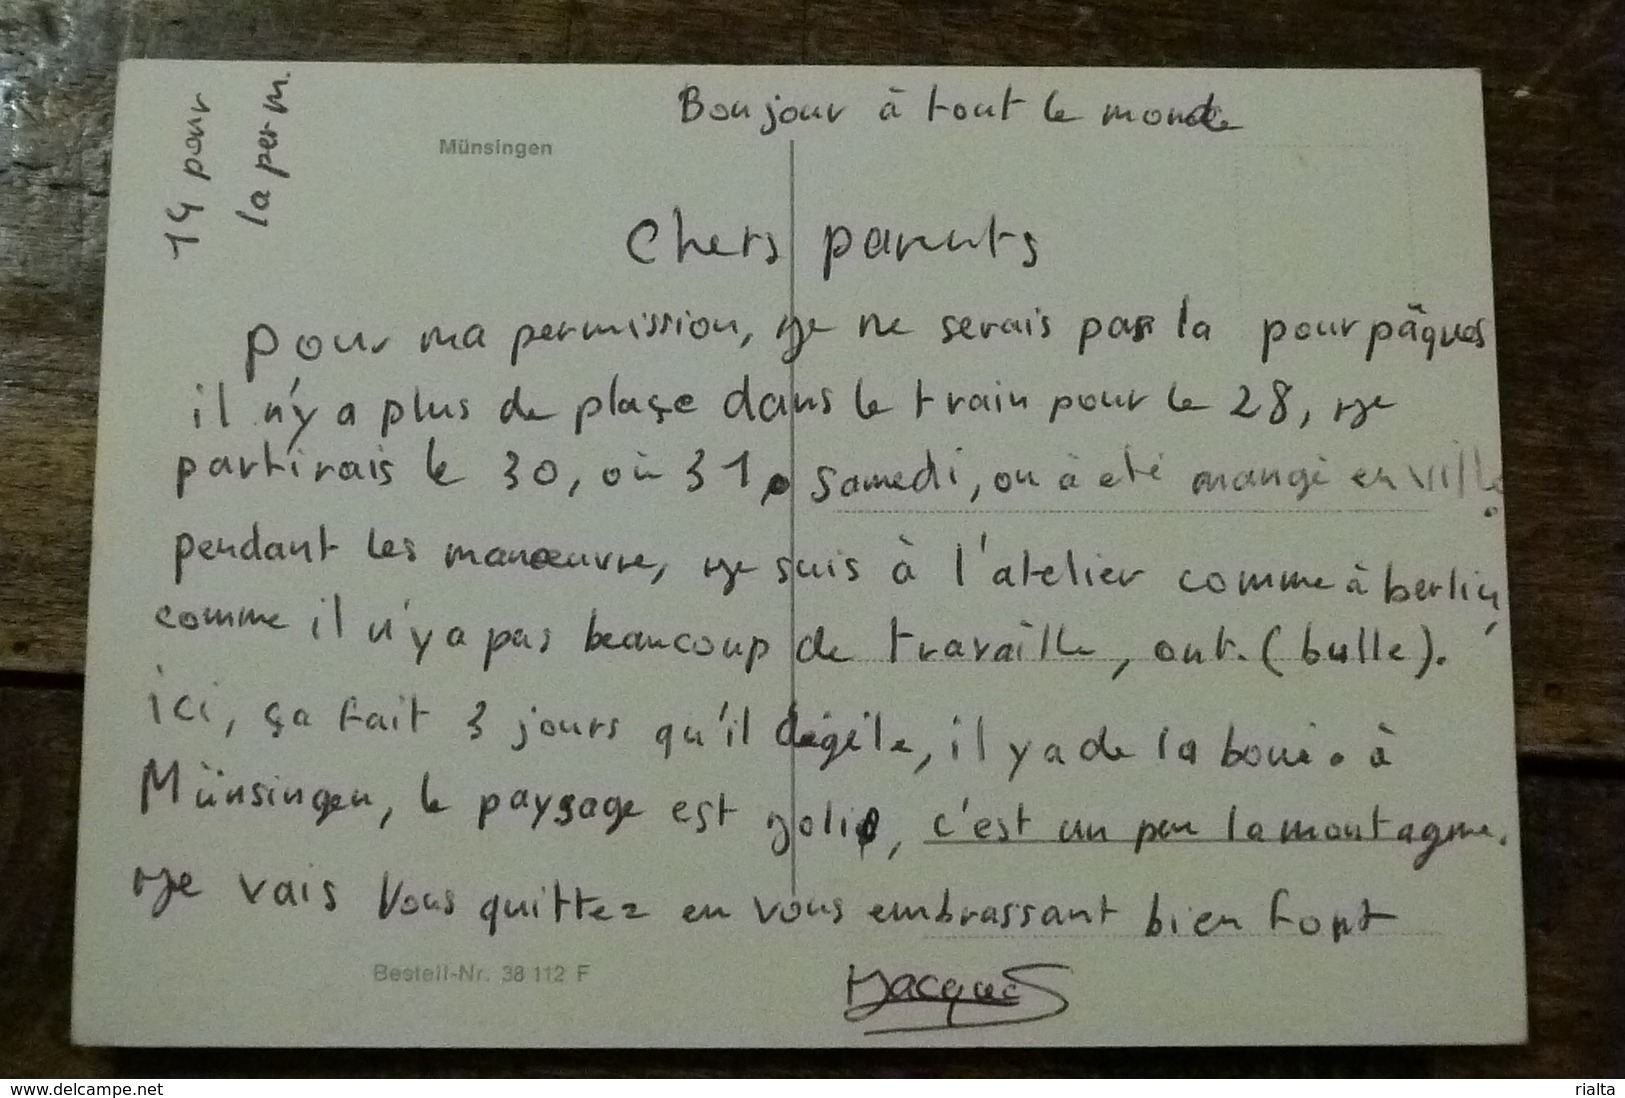 Bonjour à tout le monde
14 pour
la perm.
Münsingen
Chers parents
pour ma permission, je ne serais pas la pour pâques
il n'y a plus de plaçe dans le train pour le 28, je
partirais le 30, où 31. samedi, on à été mangé en ville.
pendant les manœuvre, je suis à l'atelier comme à berlin,
comme il n'y a pas beaucoup de travaille, ont. (bulle).
ici, ça fait 3 jours qu'il dégéle, il y a de la boue. à
Münsingen, le paysage est joli, c'est un peu la montagne.
je vais vous quittez en vous embrassant bien fort
Jacques
Bestell-Nr. 38 112 F
www.delcampe.net
rialta